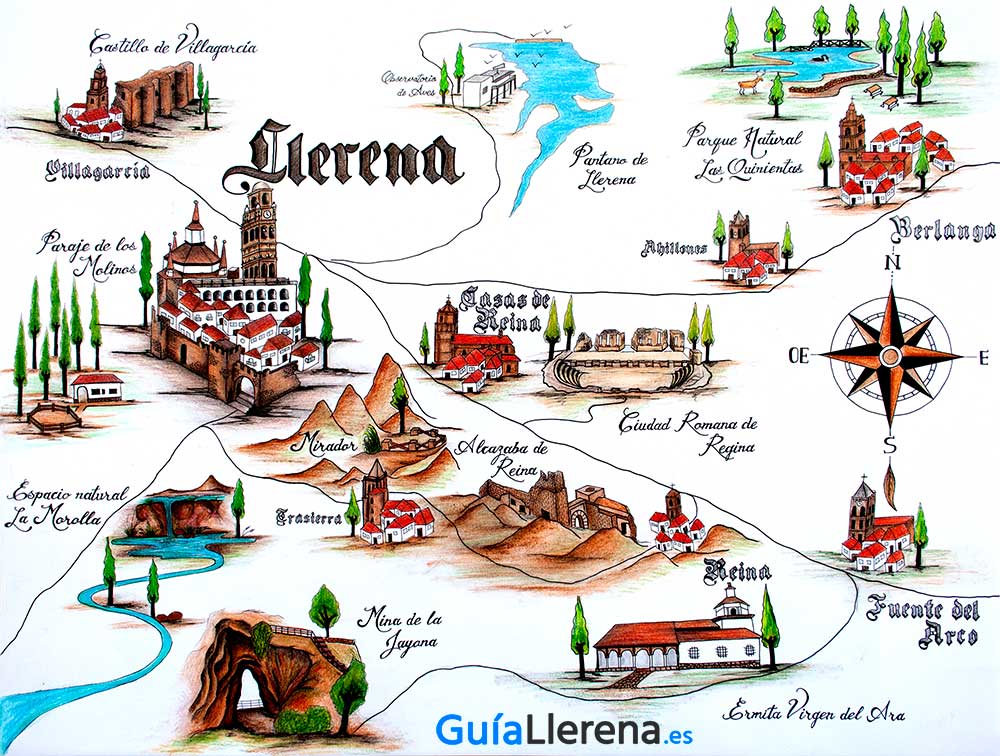 Castillo de Villagarcía
Villagarcía
Llerena
Observatorio
de Aves
Pantano de
Llerena
Parque Natural
Las Quinientas
Berlanga
Ahillones
Paraje de los
Molinos
Casas de
Reina
N
OE
E
S
Ciudad Romana de
Regina
Mirador
Alcazaba de
Reina
Espacio natural
La Morolla
Trasierra
Reina
Fuente del
Arco
Mina de la
Jayona
Ermita Virgen del Ara
GuíaLlerena.es